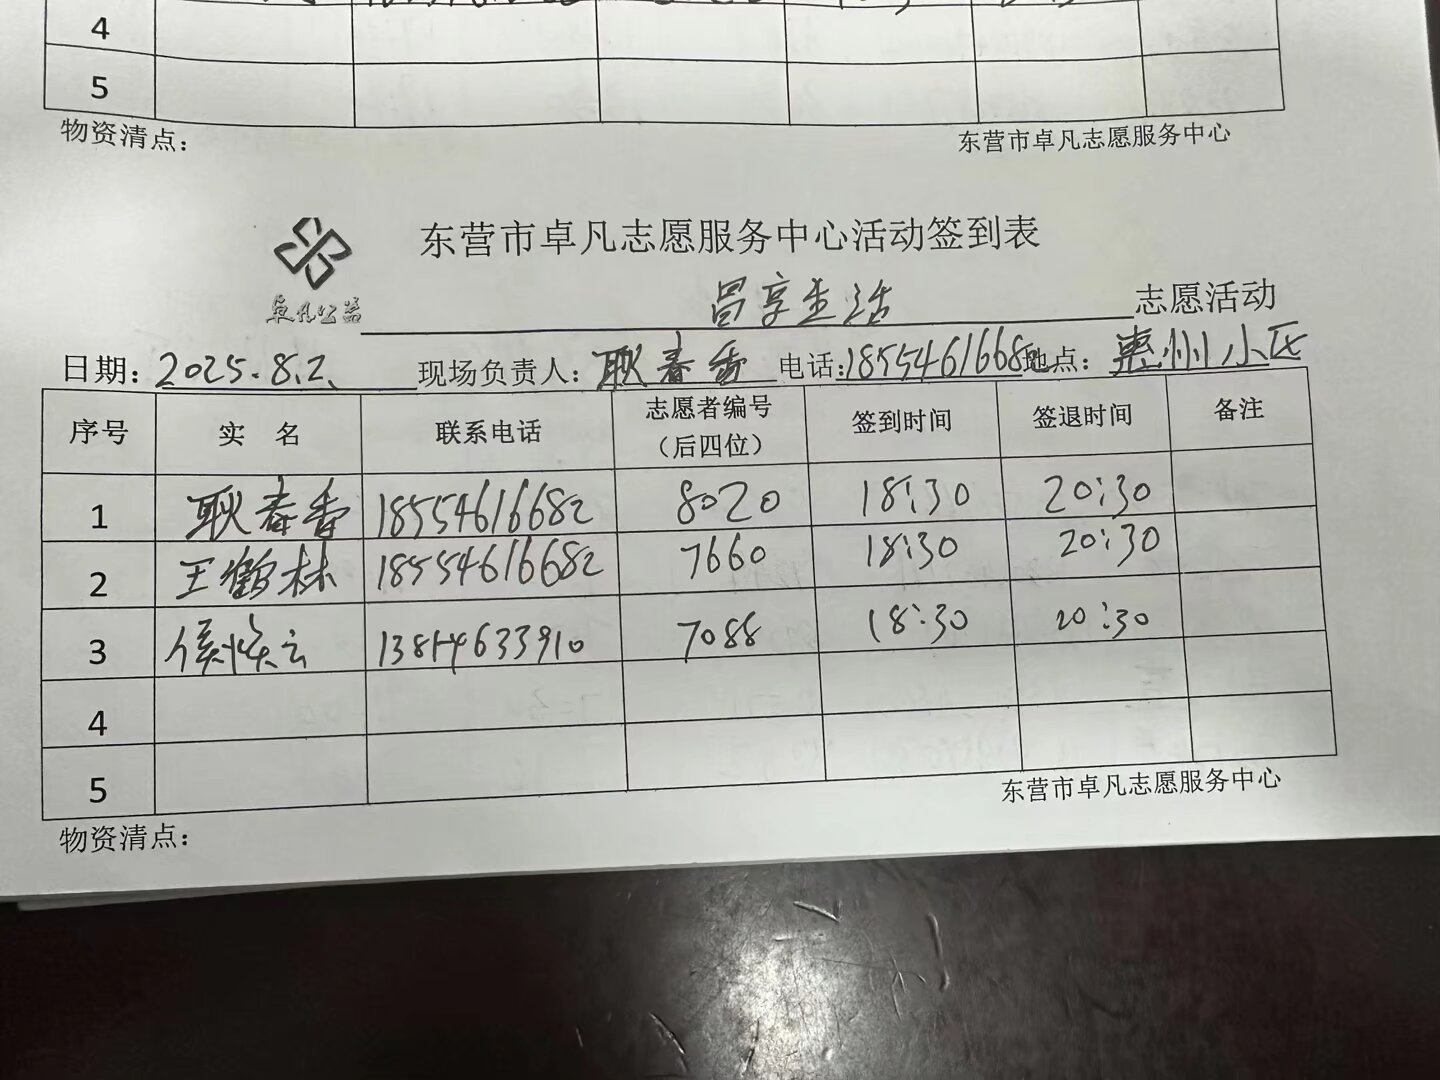 4
5
物资清点：
东营市卓凡志愿服务中心
东营市卓凡志愿服务中心活动签到表
卓凡公益
昌享生活 志愿活动
日期：2025.8.2. 现场负责人：耿春香 电话：18554616682 地点：惠州小区
序号 实 名 联系电话 志愿者编号（后四位） 签到时间 签退时间 备注
1 耿春香 18554616682 8020 18:30 20:30
2 王鹤林 18554616682 7660 18:30 20:30
3 侯焕云 7088 18:30 20:30
4
5
东营市卓凡志愿服务中心
物资清点：